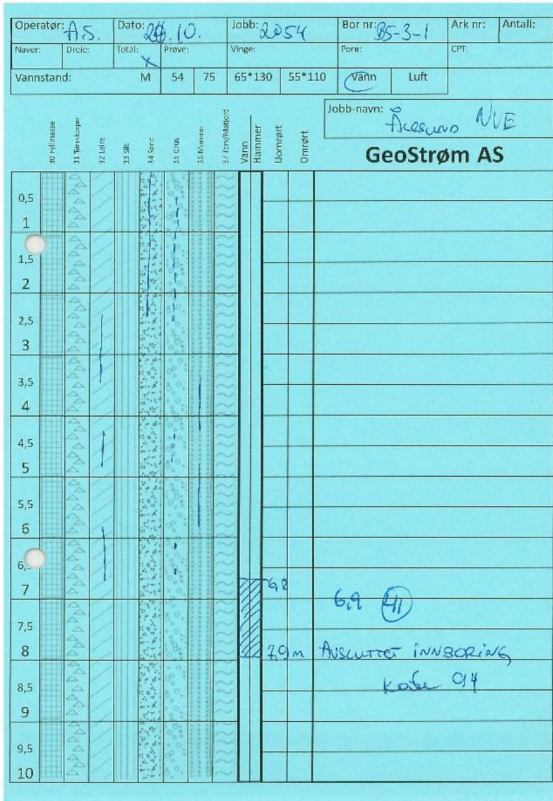 Operatør: A.S. Dato: 29.10. Jobb: 2054 Bor nr: B5-3-1 Ark nr: Antall:
Naver: Dreie: Total: X Prøve: Vinge: Pore: CPT:
Vannstand: M 54 75 65*130 55*110 Vann Luft
Jobb-navn: Ålesund NVE
GeoStrøm AS
30 Fyllmasse 31 Tørrskorpe 32 Leire 33 Silt 34 Sand 35 Grus 36 Morene Vann Hammer Uomrørt Omrørt
0,5
1
1,5
2
2,5
3
3,5
4
4,5
5
5,5
6
6,
6,8
7
6,9 411
7,5
8 7,9 m AVSLUTTET INNBORING,
Kode 94
8,5
9
9,5
10